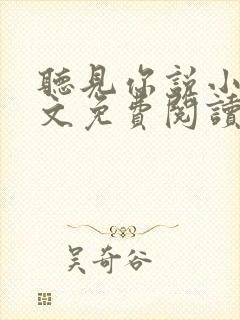 聽見你說小
文免費閱讀
吳奇谷